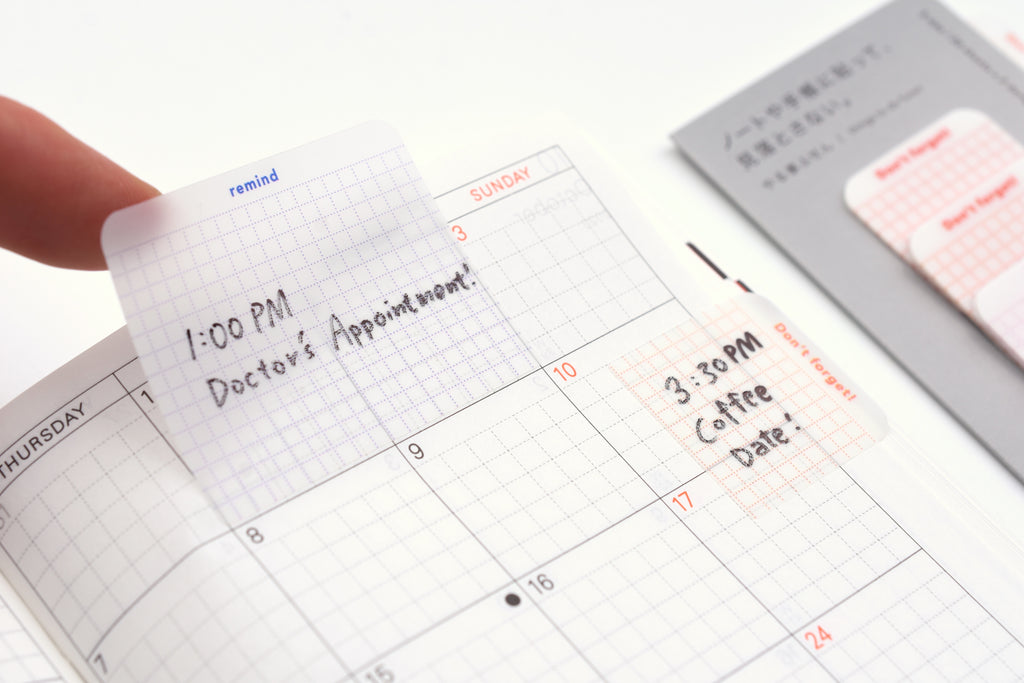 remind
1:00 PM
Doctor's Appointment!
THURSDAY
SUNDAY
October
1
3
10
3:30 PM
Coffee
Date!
Don't forget!
9
8
17
7
16
15
24
ノートや手帳に貼って、
見落とさない。
Don't forget!
Don't forget!